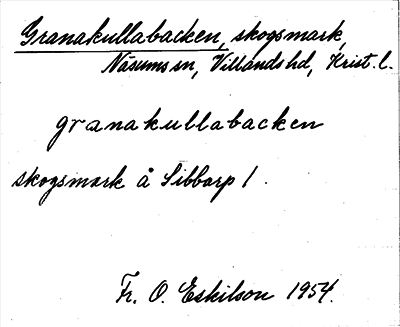 Granakullabacken, skogsmark,
Näsums sn, Villands hd, Krist. l.
granakullabacken
skogsmark å Sibbarp 1.
Fr. O. Eskilson 1954.